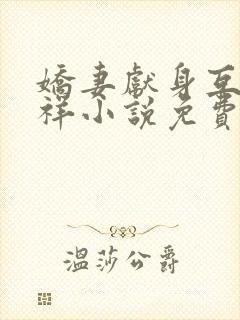 嬌妻獻身互
祥小說免費
溫莎公爵